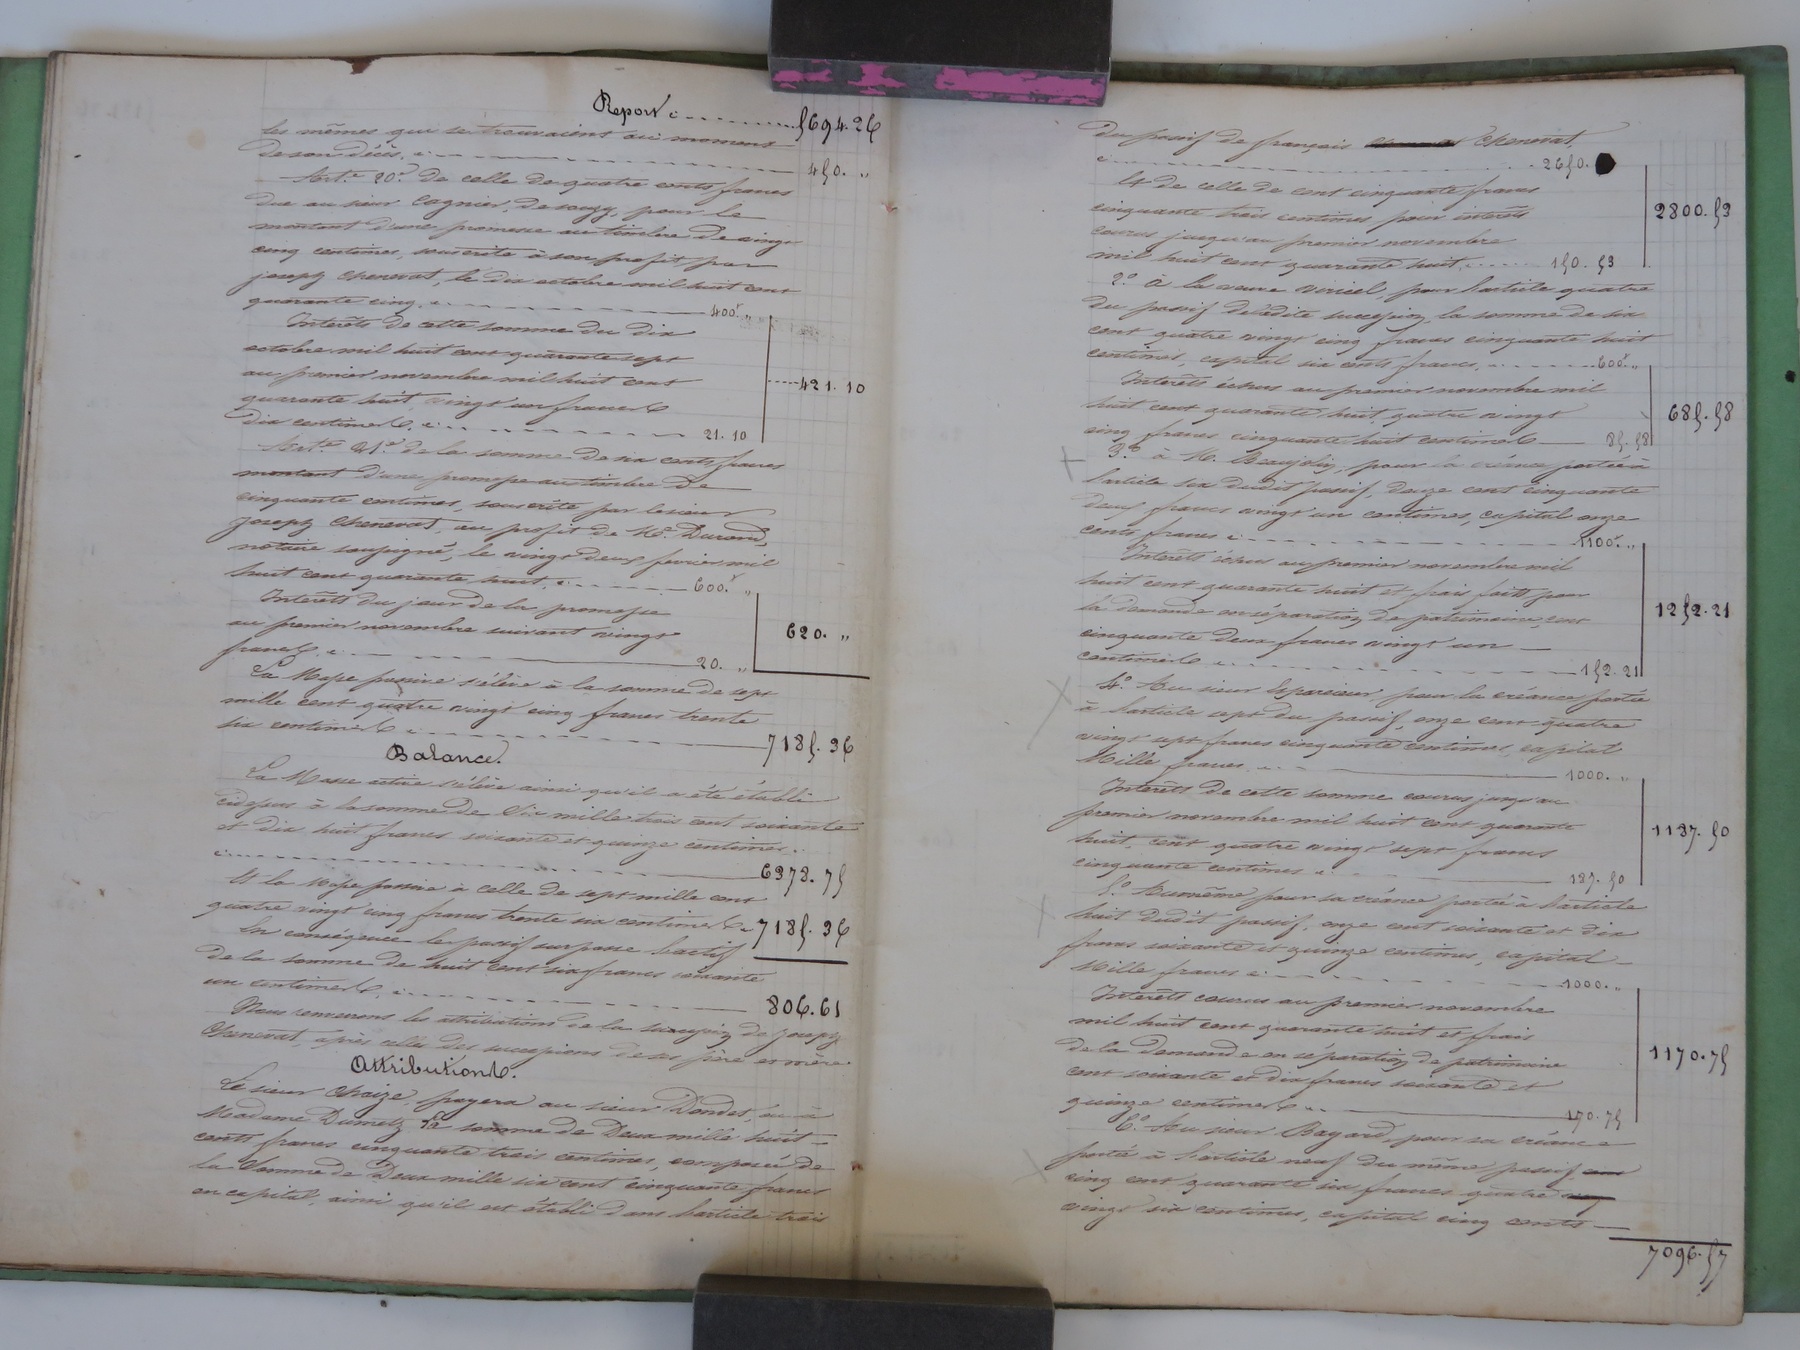 Report . . . . . . . . . 5694.26
les mêmes qui se trouvaient au moment
de son décès. . . . . . . 450. "
Art.e 20.e de celle de quatre cents francs
due au sieur Cagnier, de souzy, pour le
montant d'une promesse au timbre de vingt
cinq centimes, souscrite à son profit par
joseph Chenevat, le dix octobre mil huit cent
quarante cinq. . . . . . 400.f "
Interêts de cette somme du dix
octobre mil huit cent quarante sept
au premier novembre mil huit cent
quarante huit, vingt un francs
dix centimes. . . . . . 21. 10
421. 10
Art.e 21.e de la somme de six cents francs
montant d'une promesse au timbre de
cinquante centimes, souscrite par le sieur
joseph Chenevat, au profit de M.e Durand,
notaire soussigné, le vingt deux fevrier mil
huit cent quarante huit. . . . . 600.f "
Interêts du jour de la promesse
au premier novembre suivant vingt
francs. . . . . . 20. "
620. "
La Masse passive s'élève à la somme de sept
mille cent quatre vingt cinq francs trente
six centimes . . . . . 7185. 36
Balance.
La Masse active s'élève ainsi qu'il a été établi
cidessus à la somme de Six mille trois cent soixante
et dix huit francs soixante et quinze centimes.
. . . . . . 6378. 75
Et la Masse passive à celle de sept mille cent
quatre vingt cinq francs trente six centimes. 7185. 36
En conséquence le passif surpasse l'actif
de la somme de huit cent six francs soixante
un centimes. . . . . . 806.61
Nous renverrons les attributions de la succession de joseph
Chenevat, après celles des successions de ses père et mère
Attributions.
Le sieur Chaize, payera au sieur Dandet, ou à
Madame Dumetz la somme de Deux mille huit
cents francs cinquante trois centimes, composée de
la Somme de Deux mille six cent cinquante francs
en capital, ainsi qu'il est établi dans l'article trois
du passif de françois Chenevat,
. . . . . . 2650.
Et de celle de cent cinquante francs
cinquante trois centimes pour interêts
courus jusqu'au premier novembre
mil huit cent quarante huit. . . . . 150. 53
2800. 53
2.o à la veuve Viricel, pour l'article quatre
du passif de ladite succession, la somme de six
cent quatre vingt cinq francs cinquante huit
centimes, capital six cents francs. . . . . 600.f "
Interêts échus au premier novembre mil
huit cent quarante huit, quatre vingt
cinq francs cinquante huit centimes 85. 58
685. 58
3.o à M. Beaujolin, pour la créance portée à
l'article six dudit passif, douze cent cinquante
deux francs vingt un centimes, capital onze
cents francs . . . . . . 1100.f "
Interêts échus au premier novembre mil
huit cent quarante huit et frais faits pour
la demande en séparation de patrimoine, cent
cinquante deux francs vingt un
centimes . . . . . 152. 21
1252. 21
4.o Au sieur Esparcieux, pour la créance portée
à l'article sept du passif, onze cent quatre
vingt sept francs cinquante centimes, capital
Mille francs. . . . . 1000. "
Interêts de cette somme courus jusqu'au
premier novembre mil huit cent quarante
huit, cent quatre vingt sept francs
cinquante centimes . . . . 187. 50
1187. 50
5.o Au même pour sa créance portée à l'article
huit dudit passif, onze cent soixante et dix
francs soixante et quinze centimes, capital
Mille francs . . . . . 1000. "
Interêts courus au premier novembre
mil huit cent quarante huit et frais
de la demande en séparation de patrimoine
cent soixante et dix francs soixante et
quinze centimes . . . . 170. 75
1170. 75
6.o Au sieur Bayard, pour sa créance
portée à l'article neuf du même passif,
cinq cent quarante six francs quatre
vingt six centimes, capital cinq cents
7096. 57